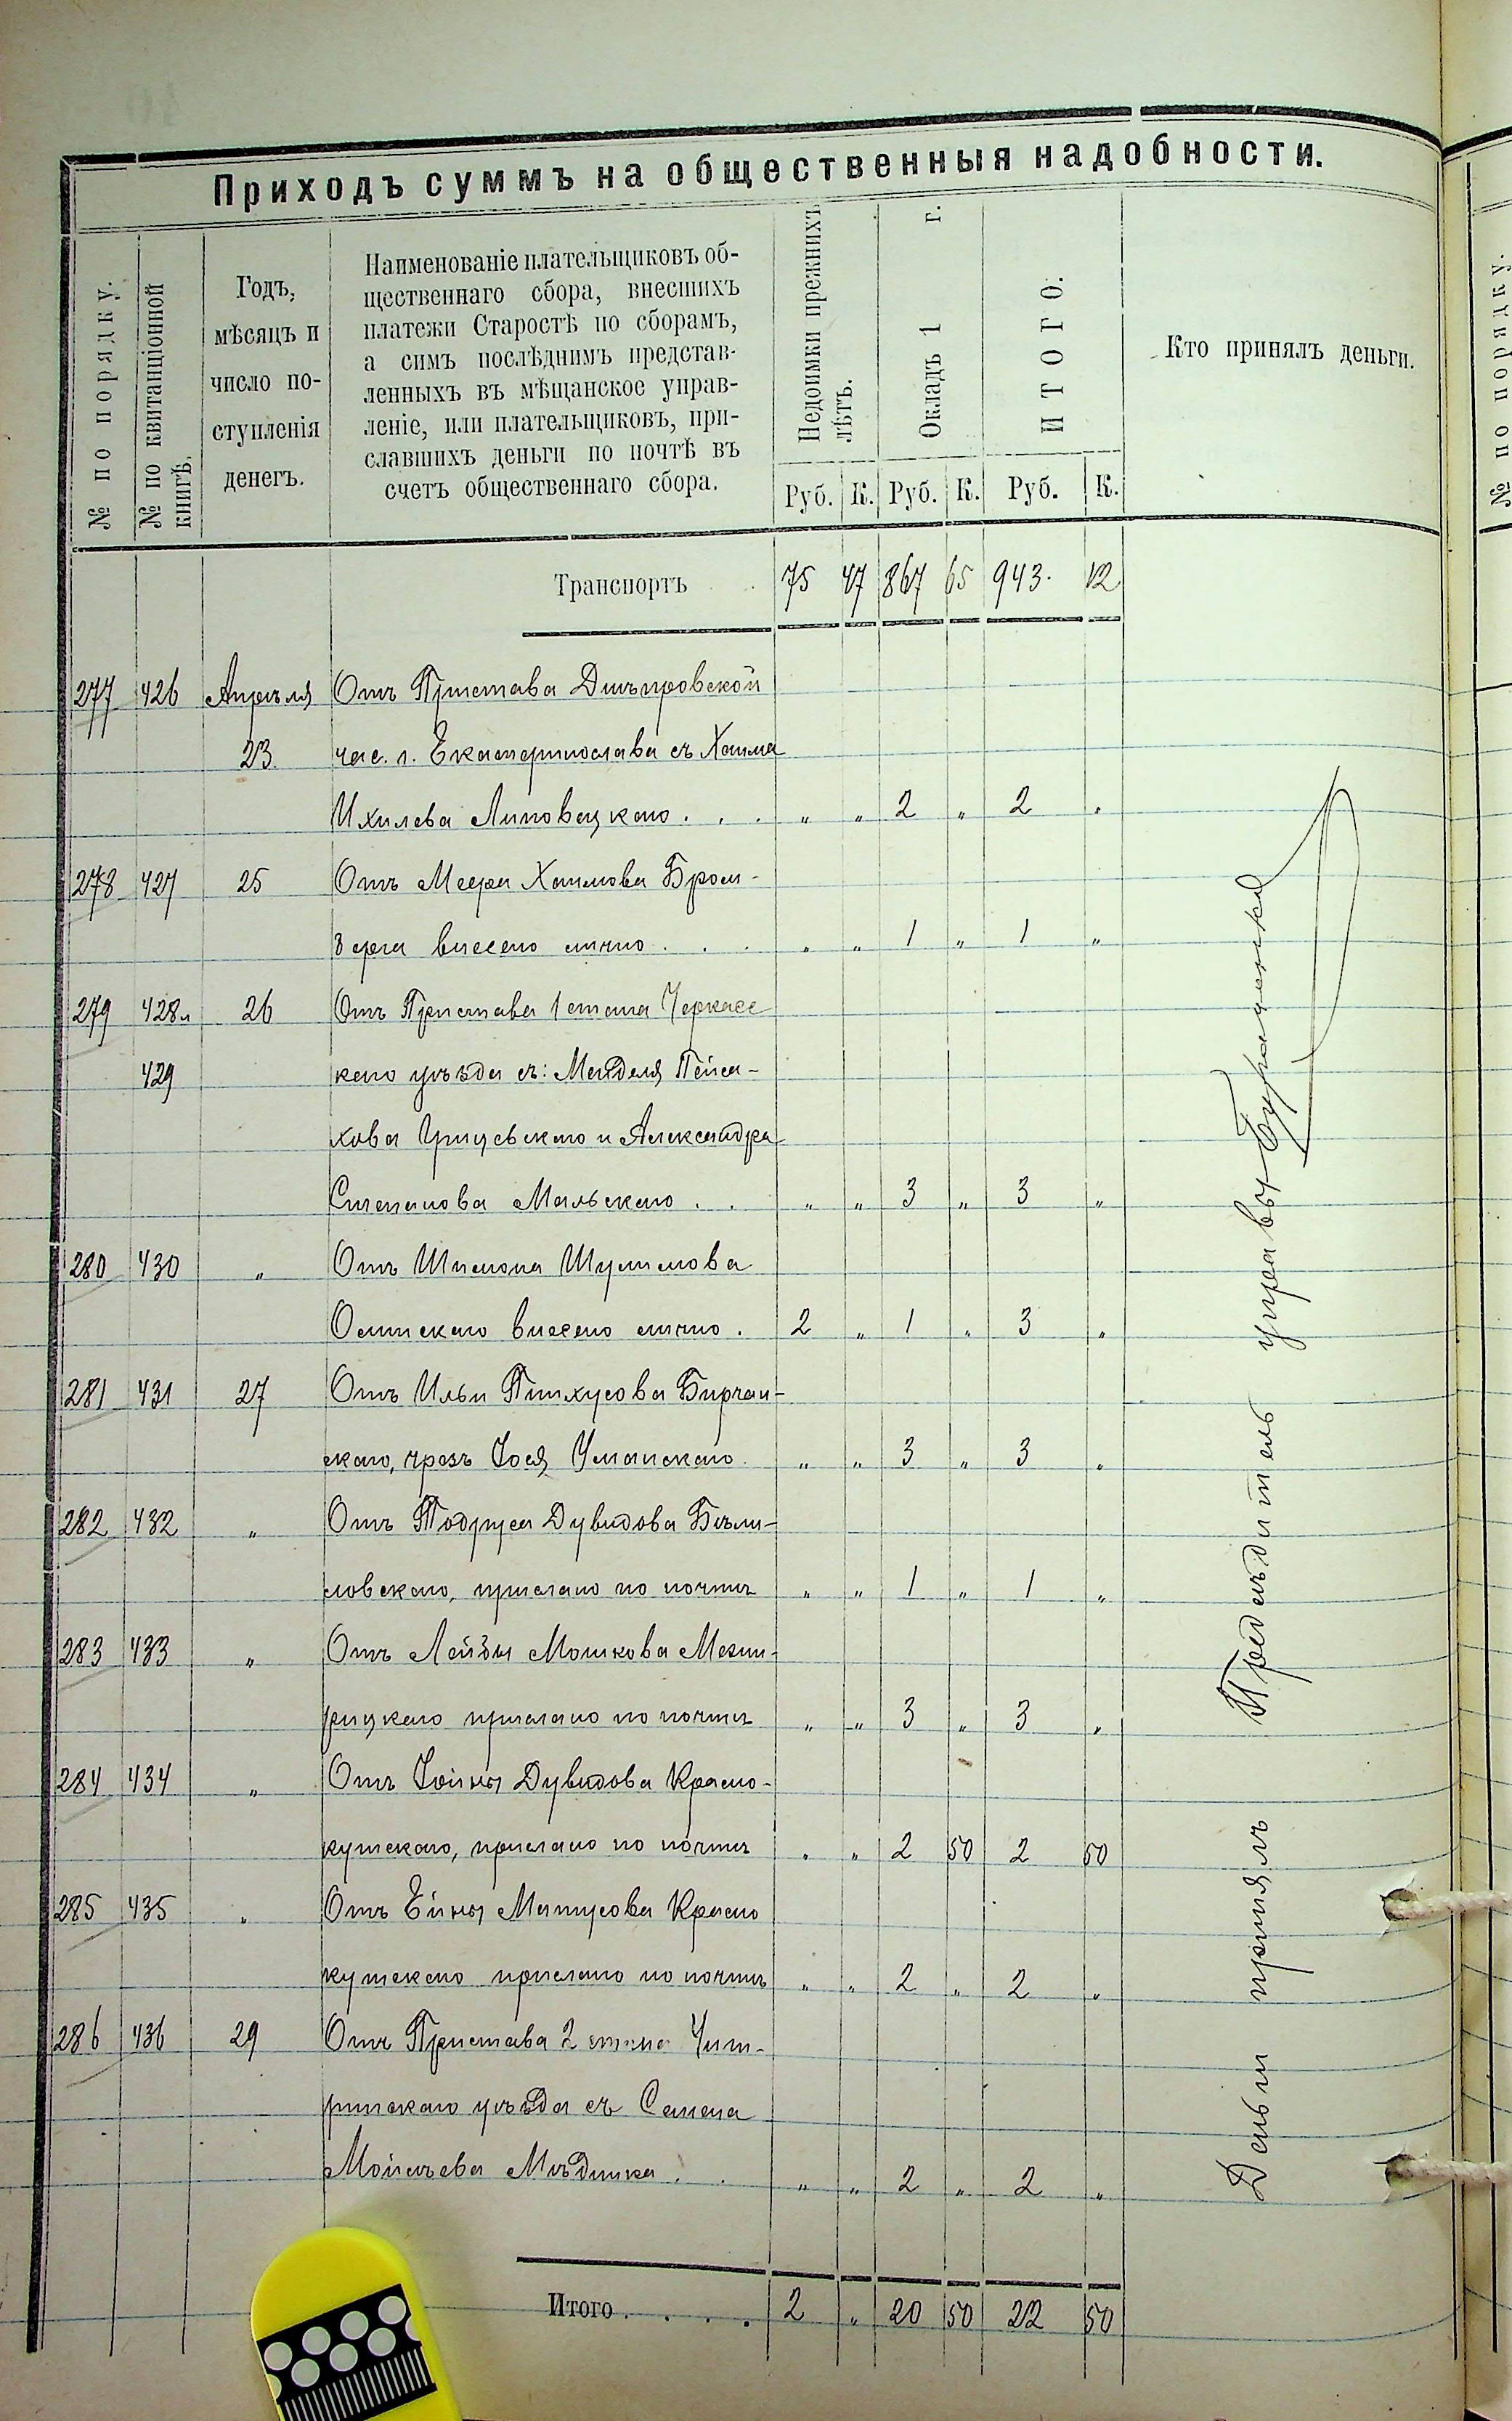 Приходъ суммъ на общественныя надобности.
№ по порядку.
№ по квитанціонной книгѣ.
Годъ, мѣсяцъ и число поступленія денегъ.
Наименованіе плательщиковъ об-
щественнаго сбора, внесшихъ
платежи Старостѣ по сборамъ,
а симъ послѣднимъ представ-
ленныхъ въ мѣщанское управ-
леніе, или плательщиковъ, при-
славшихъ деньги по почтѣ въ
счетъ общественнаго сбора.
Недоимки прежнихъ лѣтъ.
Окладъ 1 г.
ИТОГО:
Кто принялъ деньги.
Руб. К. Руб. К. Руб. К.
Транспортъ 75 47 867 65 943. 12
277 426 Апрѣля Отъ Пристава Днѣпровской
23. час. г. Екатеринослава съ Хаима
Ихилева Липовецкаго . . . " " 2 " 2 "
278 427 25 Отъ Меера Хаимова Бром-
берга внесено лично . . . " " 1 " 1 "
279 428 и 26 Отъ Пристава 1 стана Черкасс
429 каго уѣзда съ: Менделя Пейса-
хова Урицевскаго и Александра
Степанова Мальскаго . . " " 3 " 3 "
280 430 " Отъ Шимона Шулимова
Олинскаго внесено лично . 2 " 1 " 3 "
281 431 27 Отъ Ильи Пинхусова Бирчан-
скаго, чрезъ Іося Уманскаго " " 3 " 3 "
282 432 " Отъ Тодруса Дувидова Бѣли-
ловскаго, прислано по почтѣ " " 1 " 1 "
283 433 " Отъ Лейзы Мошкова Межи-
рицкаго прислано по почтѣ " " 3 " 3 "
284 434 " Отъ Іойны Дувидова Красно-
кутскаго, прислано по почтѣ " " 2 50 2 50
285 435 " Отъ Ейны Матусова Красно
кутскаго прислано по почтѣ " " 2 " 2 "
286 436 29 Отъ Пристава 2 стана Чиги-
ринскаго уѣзда съ Семена
Мойсѣева Мѣдника . . " " 2 " 2 "
Итого . . . . 2 " 20 50 22 50
Деньги принялъ Предсѣдитель управы
№ по порядку.